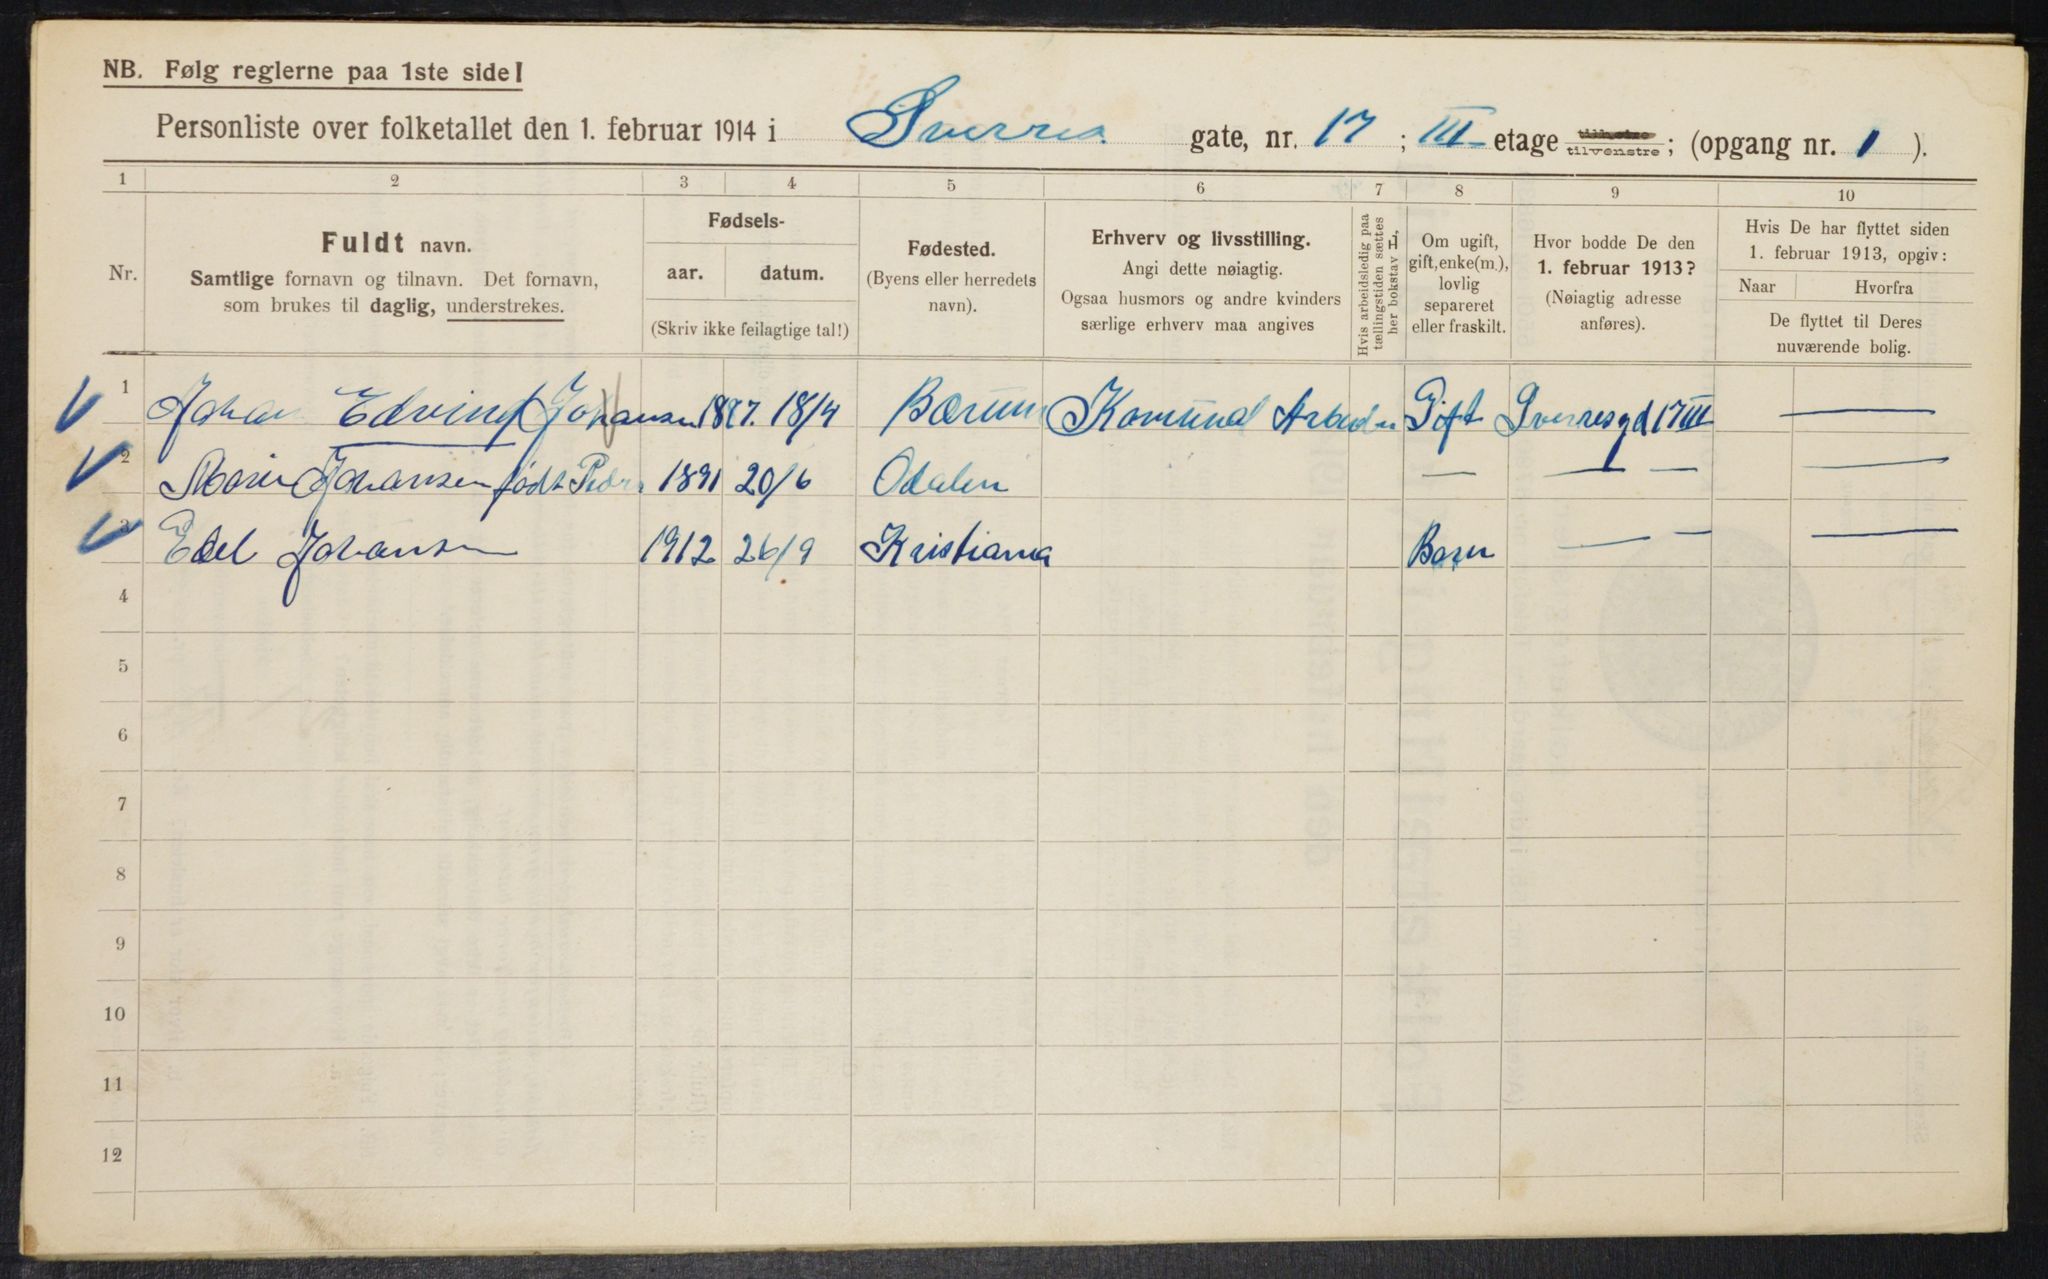 NB. Følg reglerne paa 1ste side!
Personliste over folketallet den 1. februar 1914 i Sverres gate, nr. 17 ; III etage tilhøire tilvenstre ; (opgang nr. 1 ).
1 2 3 4 5 6 7 8 9 10
Nr.
Fuldt navn.
Samtlige fornavn og tilnavn. Det fornavn,
som brukes til daglig, understrekes.
Fødsels-
aar. datum.
(Skriv ikke feilagtige tal!)
Fødested.
(Byens eller herredets
navn).
Erhverv og livsstilling.
Angi dette nøiagtig.
Ogsaa husmors og andre kvinders
særlige erhverv maa angives
Hvis arbeidsledig paa
tællingstiden sættes
her bokstav L,
Om ugift,
gift, enke(m.),
lovlig
separeret
eller fraskilt.
Hvor bodde De den
1. februar 1913?
(Nøiagtig adresse
anføres).
Hvis De har flyttet siden
1. februar 1913, opgiv:
Naar Hvorfra
De flyttet til Deres
nuværende bolig.
1 Johan Edvind Johansen 18 7. 18/4 Bærum Komunal Arbeider Gift Sverresgd 17 III —
2 Marie Johansen født Pedr 1891 20/6 Odalen — — — —
3 Edel Johansen 1912 26/9 Kristiania Barn — — —
4
5
6
7
8
9
10
11
12